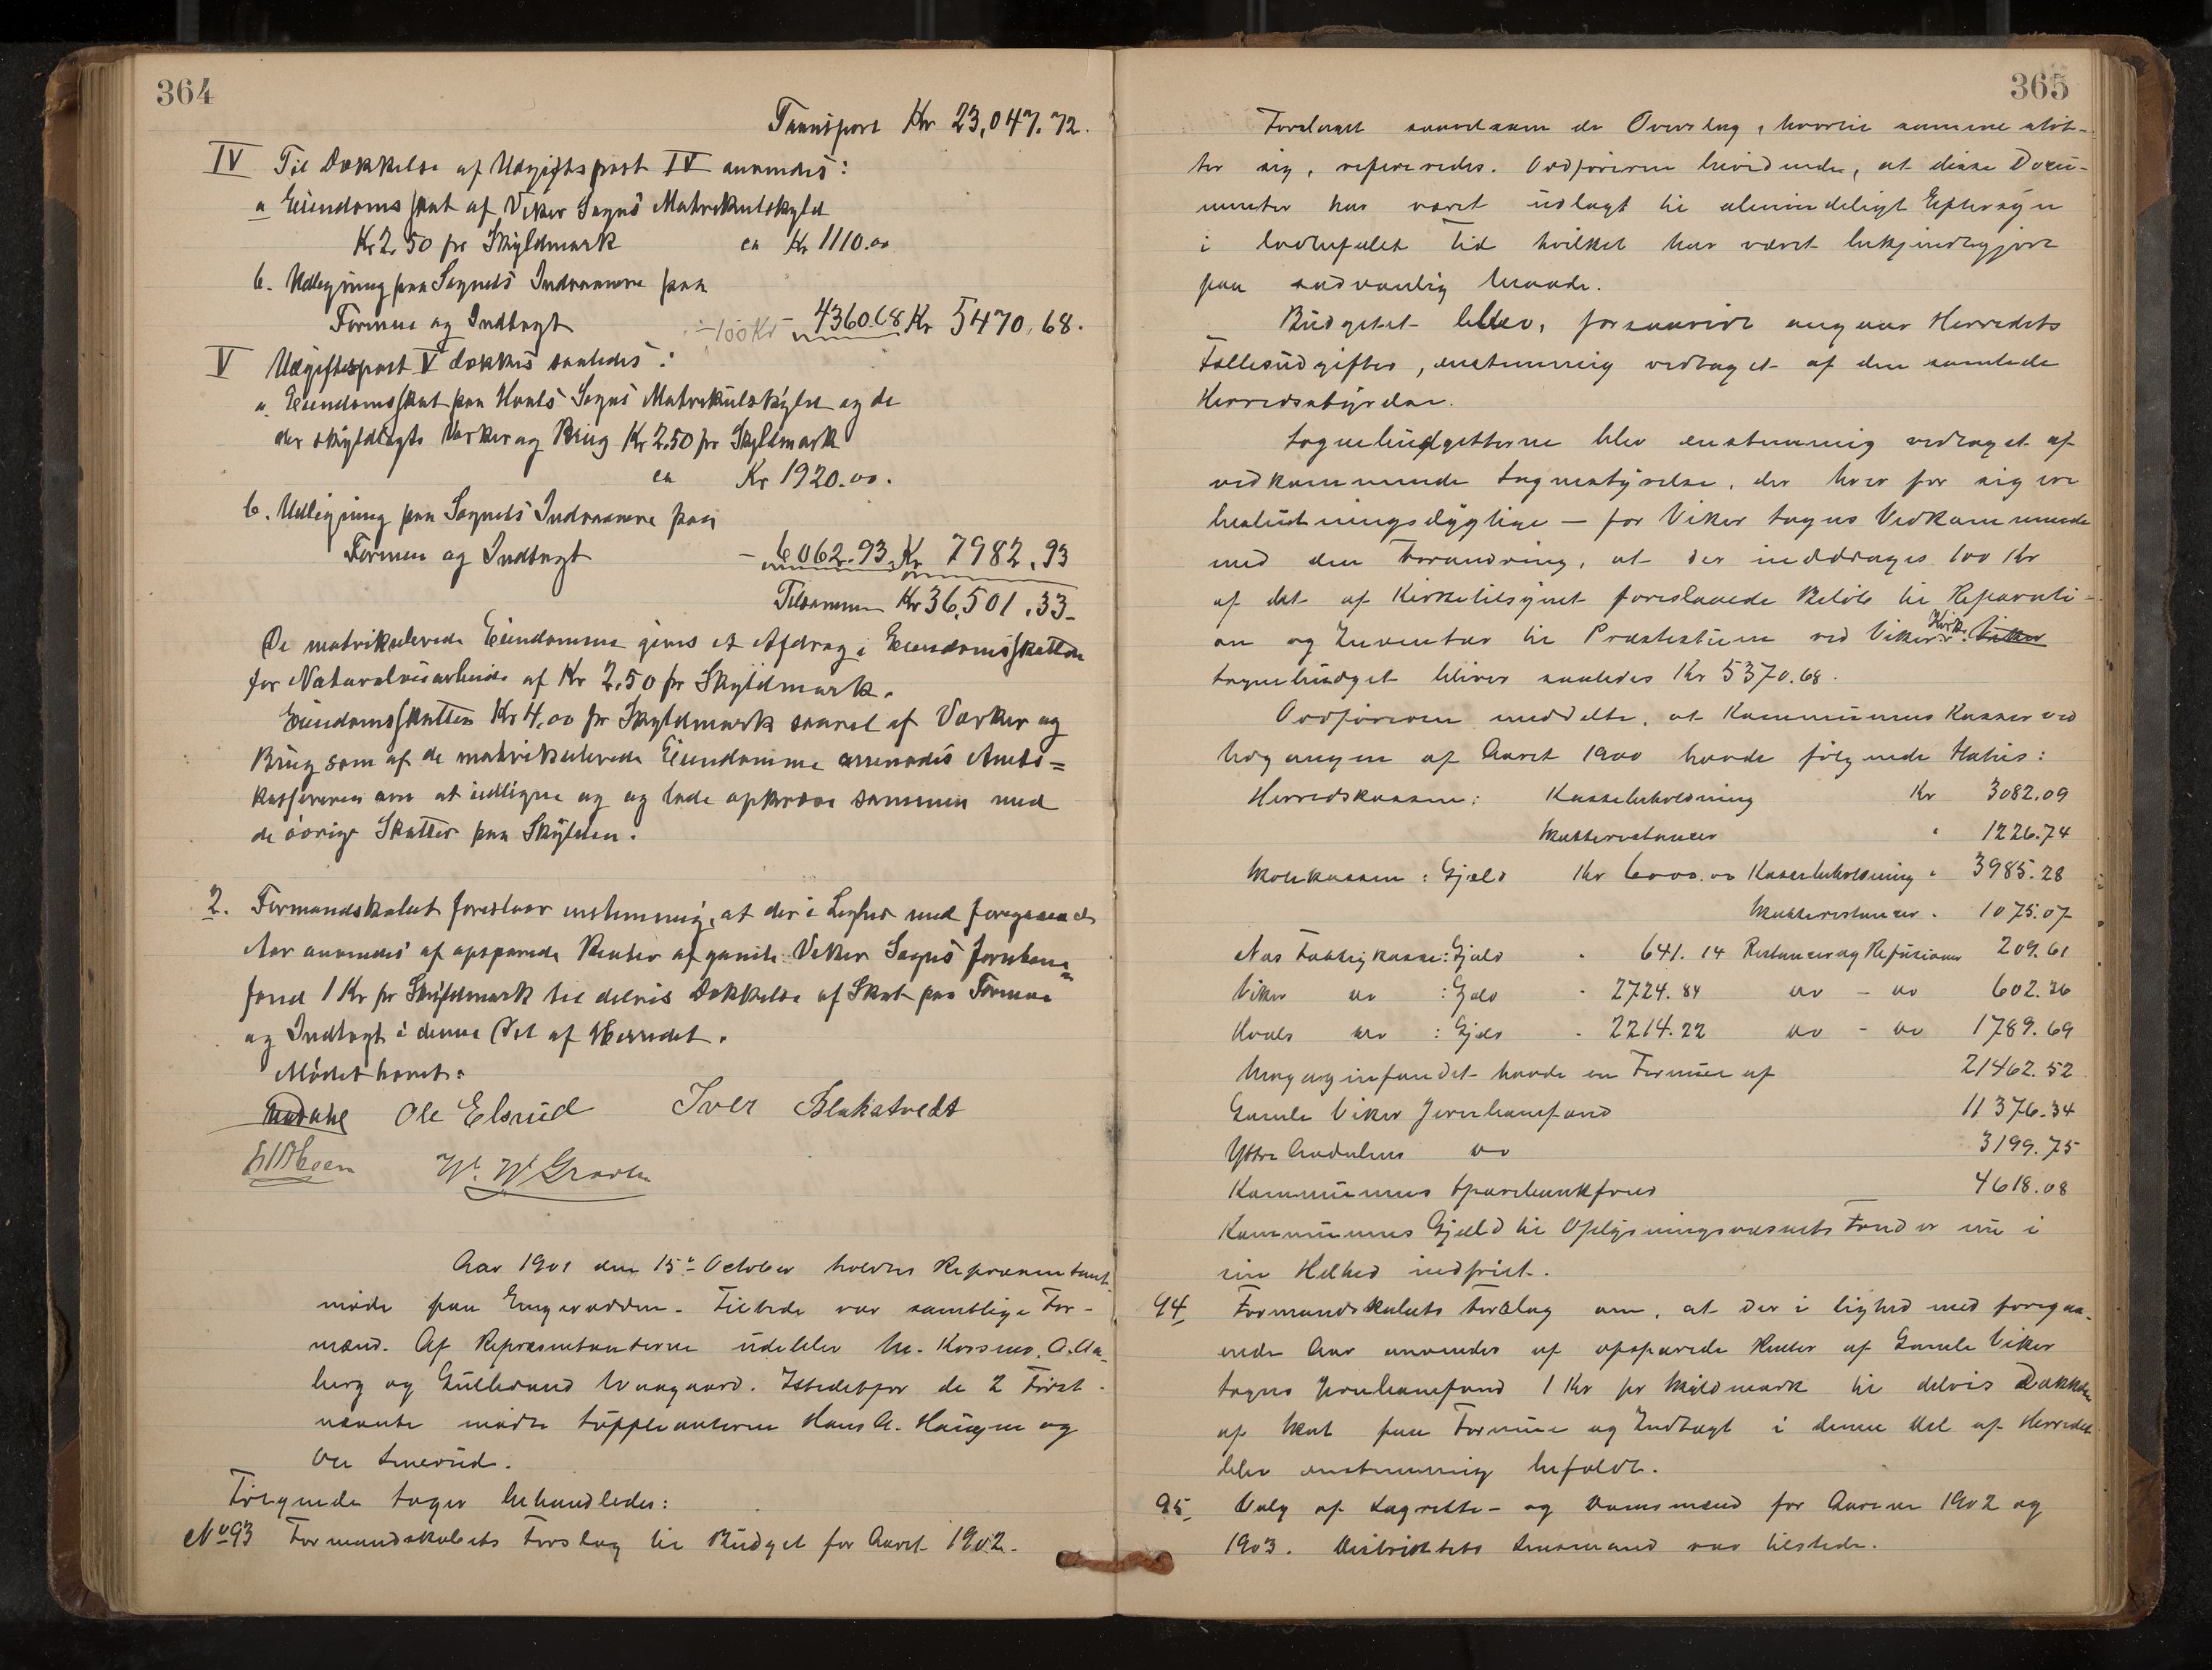 364
Transport Kr 23,047.72.
IV Til Dækkelse af Udgiftspost IV anvendes:
a Eiendomsskat af Viker Sogns Matrikulskyld
Kr 2.50 pr Skyldmark ca Kr 1110.00
b. Udligning paa Sognets Indvaanere paa
Formue og Indtægt ÷100 Kr - 4360.68 Kr 5470.68.
V Udgiftspost V dækkes saaledes:
a. Eiendomsskat paa Hovals Sogns Matrikulskyld og de
der skyldlagte Værker og Brug Kr 2.50 pr Skyldmark
ca Kr 1920.00.
b. Udligning paa Sognets Indvaanere paa
Formue og Indtægt - 6062.93 Kr 7982.93
Tilsammen Kr 36,501.33
De matrikulerede Eiendomme gives et Afdrag i Eiendomsskatten
for Naturalveiarbeide af Kr 2.50 pr Skyldmark.
Eiendomsskatten Kr 4.00 pr Skyldmark saavel af Værker og
Brug som af de matrikulerede Eiendomme anmodes Amts=
kassereren om at udligne og og lade opkræve sammen med
de övrige Skatter paa Skylden.
2. Formandskabet foreslaar enstemmig, at der i Lighed med foregaaende
Aar anvendes af opsparede Renter af gamle Viker Sogns Jernbane=
fond 1 Kr pr Skyldmark til delvis Dækkelse af Skat paa Formue
og Indtægt i denne Del af Herredet.
Mödet hævet.
Ole Elsrud Iver Blakstvedt
Aar 1901 den 15de October holdtes Repræsentant
möde paa Engeradden. Tilstede var samtlige For-
mænd. Af Repræsentanterne udeblev M. Korsmo, A. Aa-
berg og Gulbrand Waagaard. Istedetfor de 2 först-
nævnte mödte Suppleanterne Hans A. Haugen og
Ole Smerud.
Fölgende Sager behandledes:
No 93 Formandskabets Forslag til Budget for Aaret 1902.
365
Forslaget saavelsom de Overslag, hvortil samme stöt-
ter sig, refereredes. Ordföreren bevidnede, at disse Docu-
menter har været udlagt til almindeligt Eftersyn
i lovbefalet Tid hvilket har været bekjendtgjort
paa sædvanlig Maade.
Budgetet blev, forsaavidt angaar Herredets
Fællesudgifter, enstemmig vedtaget af den samlede
Herredsstyrelse.
Sognebudgetterne blev enstemmig vedtaget af
vedkommende Sognestyrelse, der hver for sig var
beslutningsdygtige — for Viker Sogns Vedkommende
med den Forandring, at der inddrages 100 Kr
af det af Kirketilsynet foreslaaede Belöb til Reparati-
on og Inventar til Præstestuen ved Viker Kirke. Viker
Sognebudget bliver saaledes Kr 5370.68.
Ordföreren meddelte, at Kommunens Kasser ved
Udgangen af Aaret 1900 havde fölgende Status:
Herredskassen: Kassebeholdning Kr 3082.09
Skatterestancer " 1226.74
Skolekassen: Gjæld Kr 6000.00 Kassebeholdning " 3985.28
Skatterestancer " 1075.07
Næs Fattigkasse: Gjæld " 641.14 Restancer og Refusioner 209.61
Viker do : Gjæld " 2724.84 do - do 602.36
Hovals do : Gjæld " 2214.22 do - do 1789.69
Magasinfondet havde en Formue af 21462.52
Gamle Viker Jernbanefond 11376.34
Ytre Aadalens do 3199.75
Kommunens Sparebankfond 4618.08
Kommunens Gjæld til Oplysningsvæsnets Fond er nu i
sin Helhed indfriet.
94 Formandskabets Forslag om, at der i lighed med foregaa-
ende Aar anvendes af opsparede Renter af Gamle Viker
Sogns Jernbanefond 1 Kr pr Skyldmark til delvis Dækkelse
af Skat paa Formue og Indtægt i denne Del af Herredet
blev enstemmig bifaldt.
95. Valg af Lagrette- og Domsmænd for Aarene 1902 og
1903. Distriktets Lensmand var tilstede.